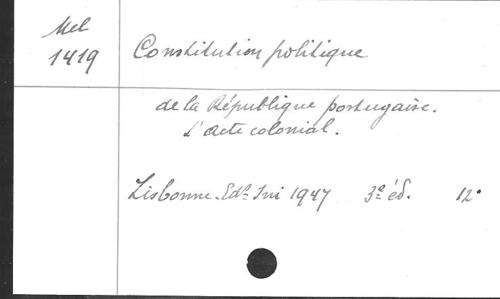 Mel
1419
Constitution politique
de la République portugaise.
L'Acte colonial.
Lisbonne. Edns Sni 1947 3e éd. 12°